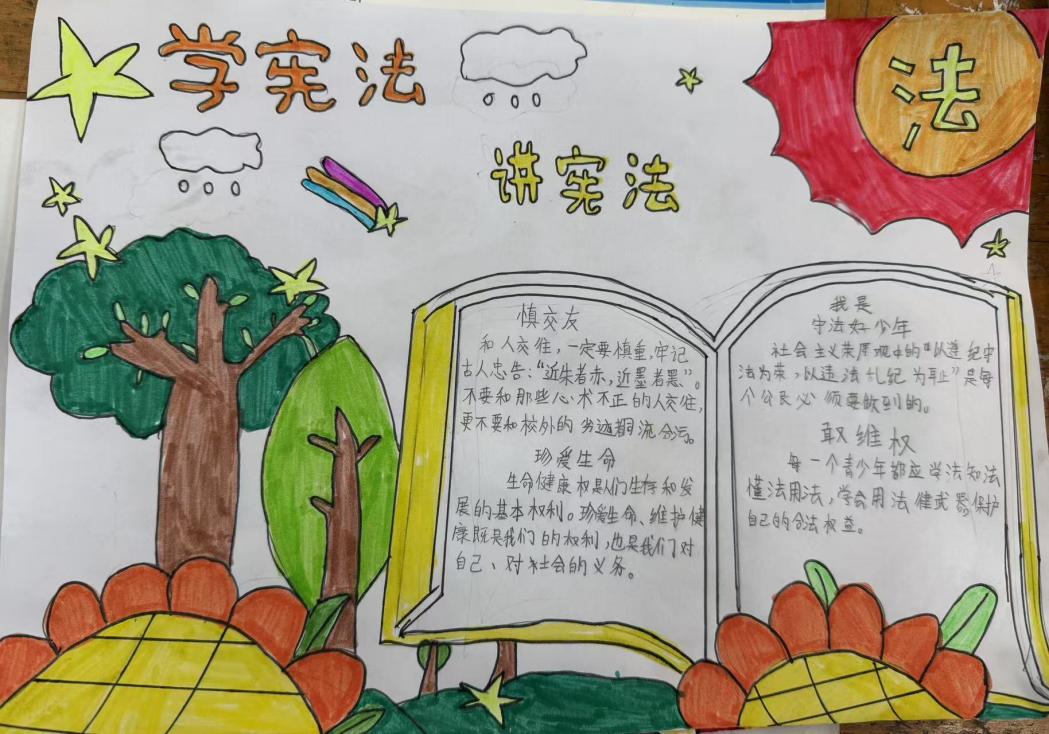 学宪法
讲宪法
法
慎交友
和人交往，一定要慎重，牢记
古人忠告：“近朱者赤，近墨者黑”。
不要和那些心术不正的人交往，
更不要和校外的 流
珍爱生命
生命健康权是人们生存和发
展的基本权利。珍爱生命、维护健
康既是我们的权利，也是我们对
自己、对社会的义务。
我是
守法好少年
社会主义荣 观中的“以遵纪守
法为荣，以违法乱纪为耻”是每
个公民必须要做到的。
敢维权
每一个青少年都应学法知法
懂法用法，学会用法 武器保护
自己的合法权益。